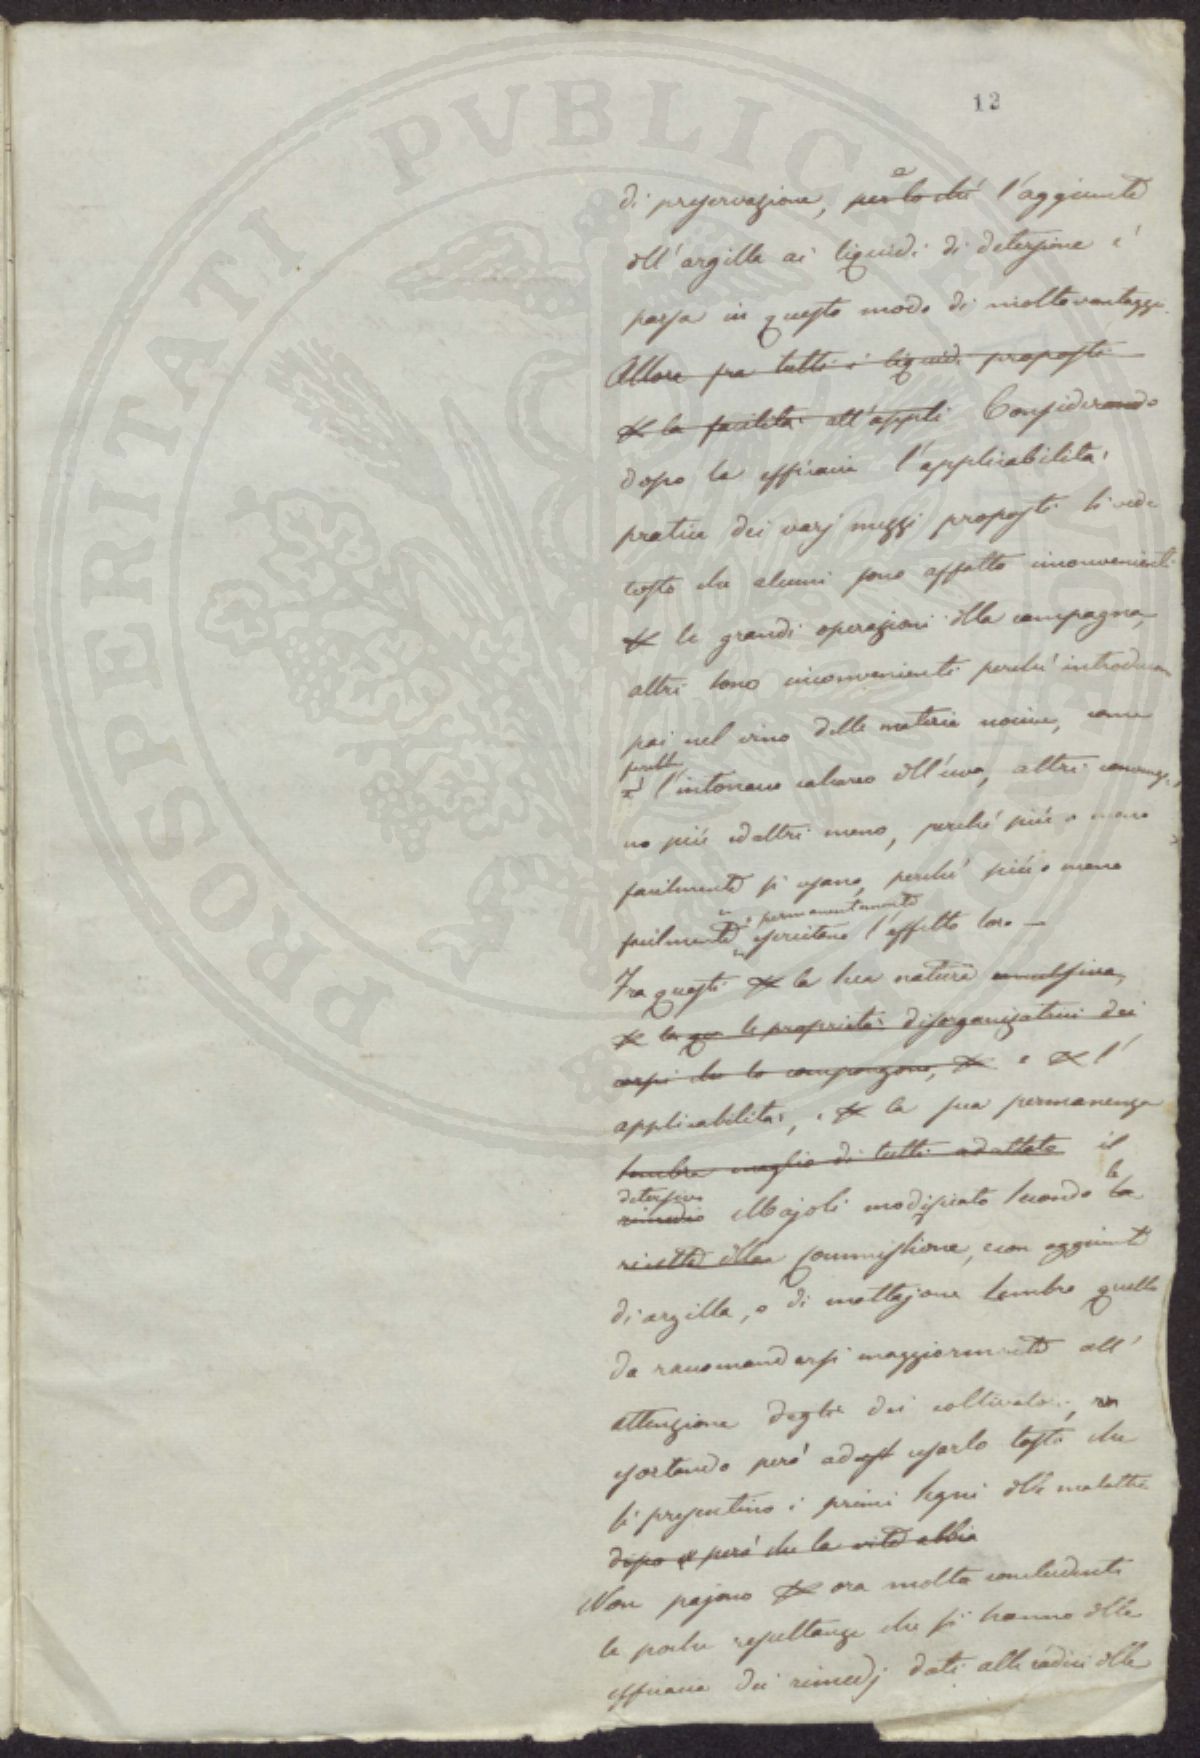 PROSPERITATI PVBLICAE
12
di preservazione, per lo ché l'aggiunta
a
dell'argilla ai liquidi di detersione è
parsa in questo modo di molto vantaggio.
Allora fra tutti i liquidi proposti
la facilità all'appli Considerando
dopo la efficacia l'applicabilità
pratica dei varj mezzi proposti si vede
tosto che alcuni sono affatto inconvenienti
le grandi operazioni della campagna,
altri sono inconvenienti perché introducon
poi nel vino delle materie nocive, come
l'intonaco calcareo dell'uva, altri convengo
no più ed altri meno, perché più o meno
facilmente si usano, perché più o meno
e permanentemente
facilmente esercitano l'effetto loro —
Fra questi la sua natura
le proprietà disorganizatrici dei
corpi che lo compongono, e l'
applicabilità, e la sua permanenza
sembra meglio di tutti adattato il
detersivo le
rimedio Majoli modificato secondo la
ricetta della Commissione, con aggiunta
di argilla, o di mattajone sembra quello
da raccomandarsi maggiormente all'
attenzione degli dei coltivatori,
esortando però ad usarlo tosto che
si presentino i primi segni della malattia
dopo però che la vite abbia
Non pajono ora molto concludenti
le poche resultanze che si hanno della
efficacia dei rimedj dati alle radici delle